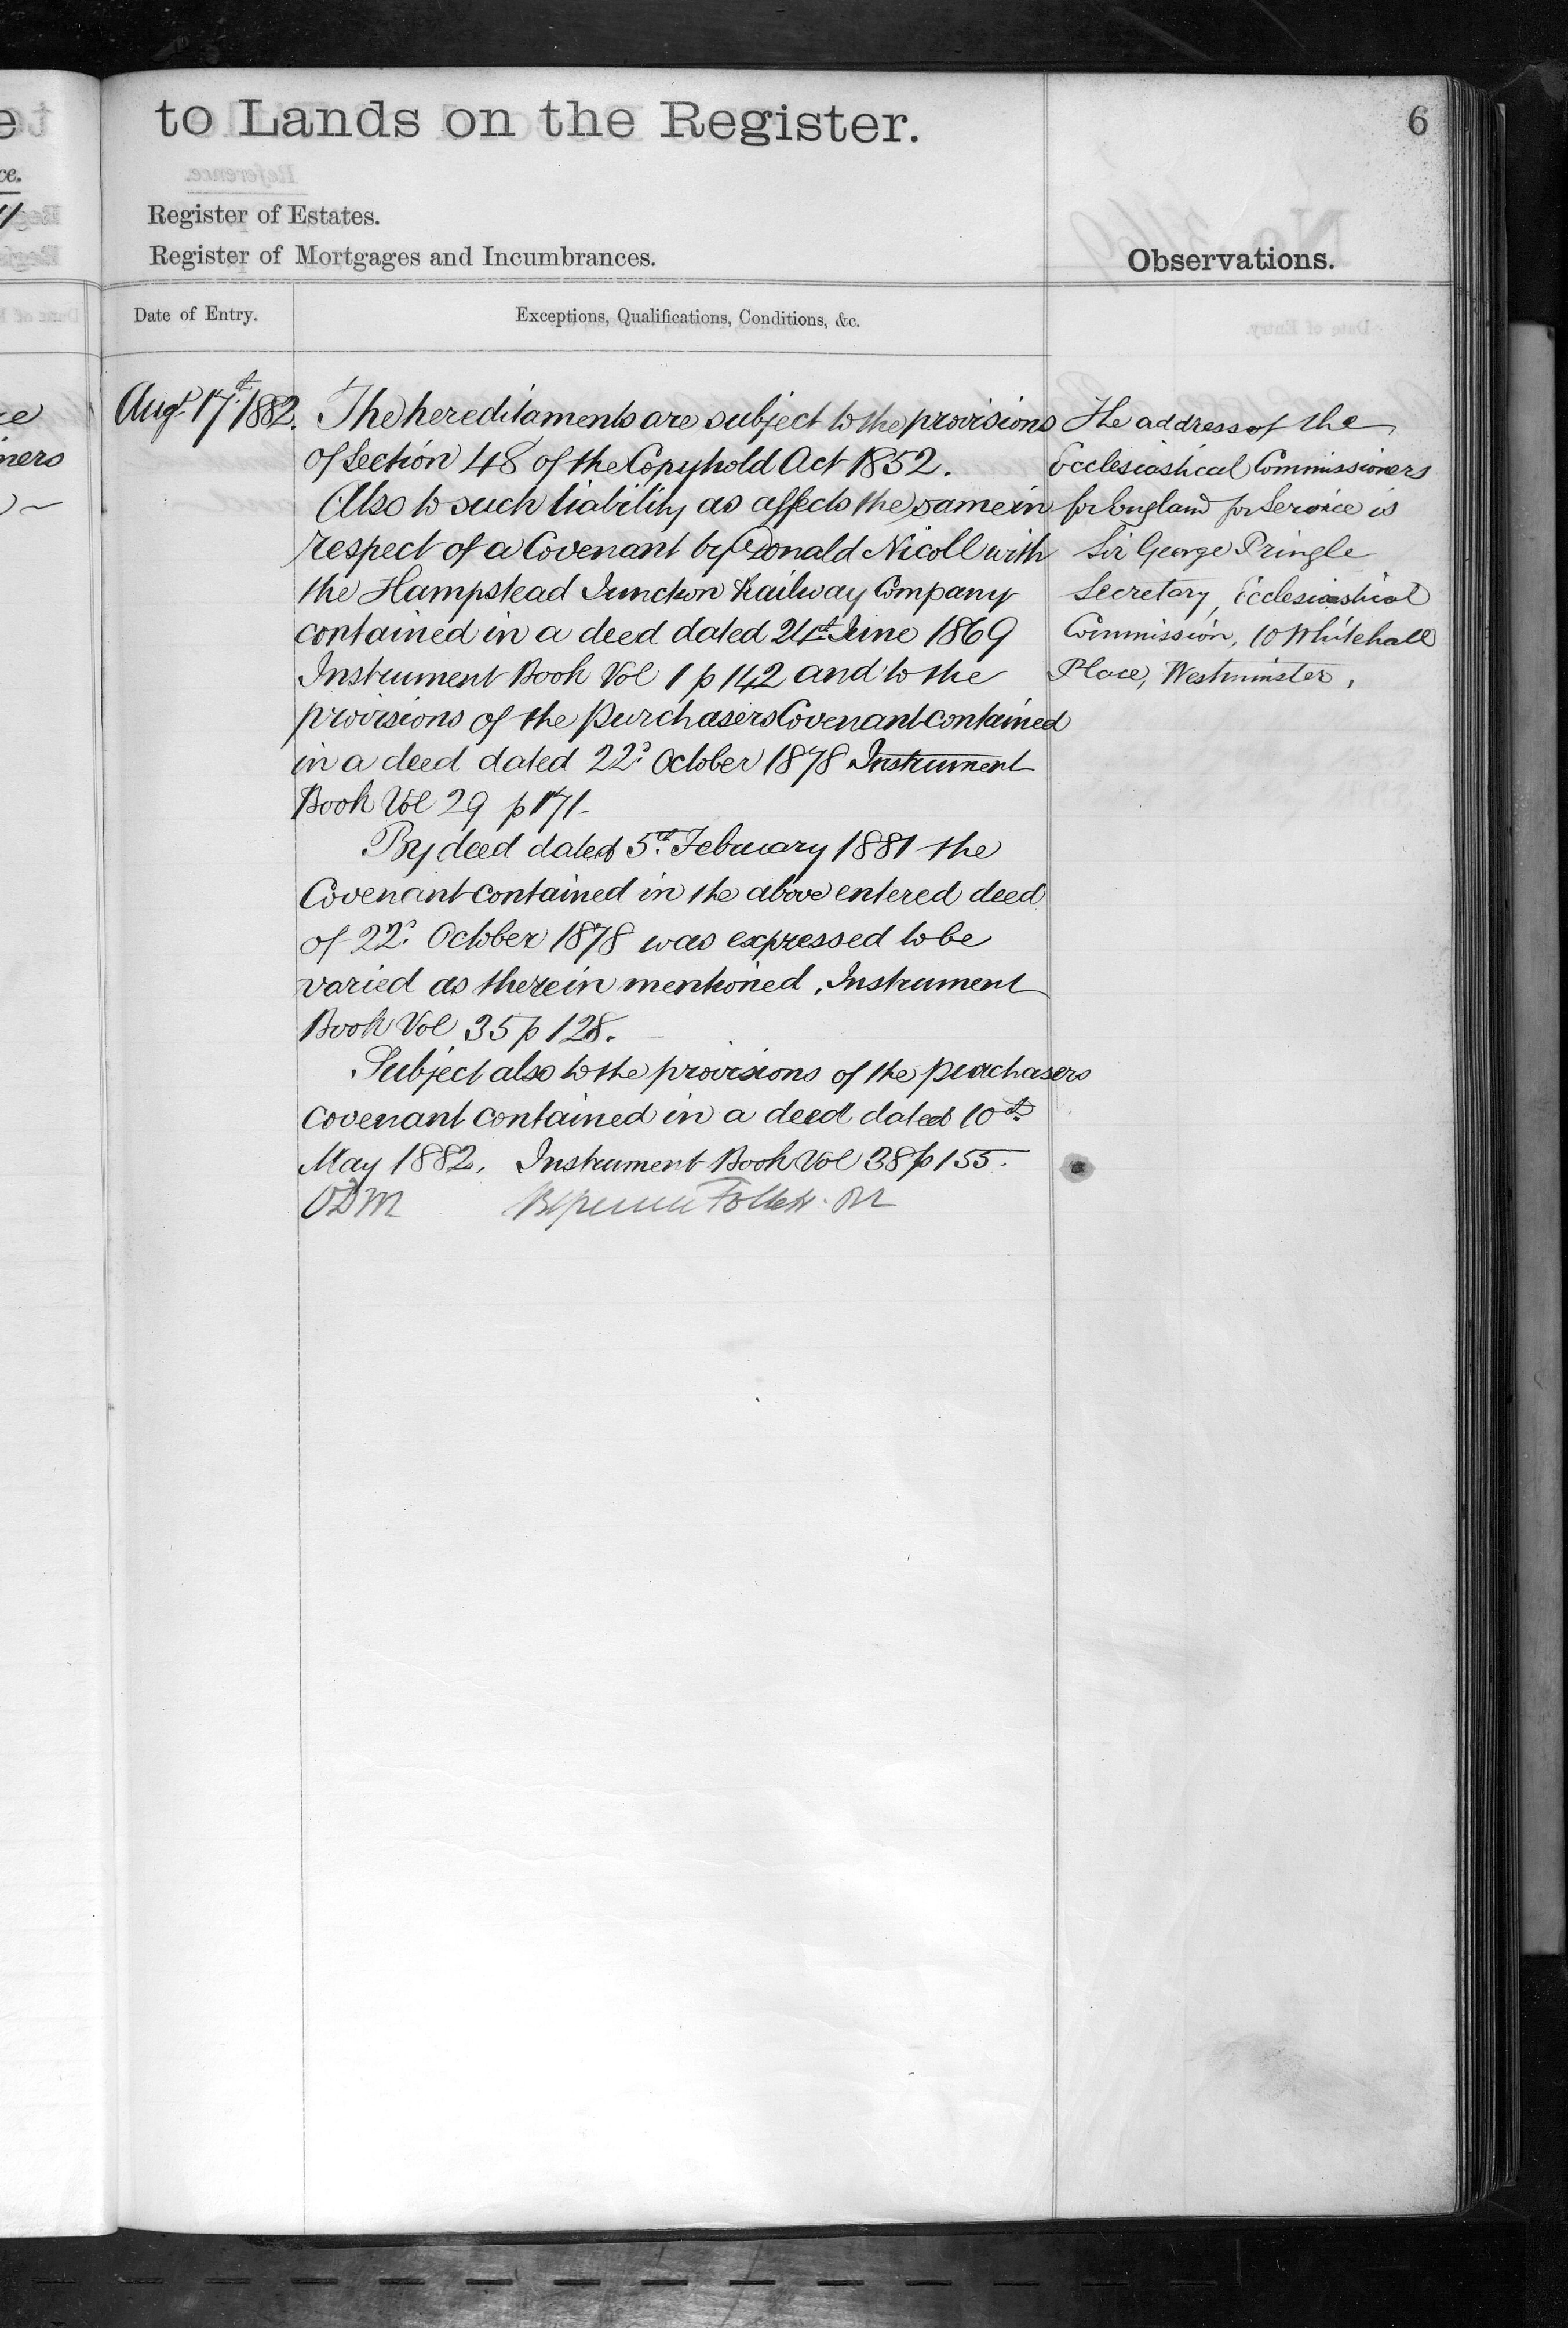 to Lands on the Register.
6
Register of Estates.
Register of Mortgages and Incumbrances.
Observations.
Date of Entry.
Exceptions, Qualifications, Conditions, &c.
Augt. 17th. 1882.
The hereditaments are subject to the provisions
of Section 48 of the Copyhold Act 1852.
Also to such liability as affects the same in
respect of a Covenant by Donald Nicoll with
the Hampstead Junction Railway Company
contained in a deed dated June 1869
Instrument Book Vol 1 p 142 and to the
provisions of the purchasers Covenant contained
in a deed dated 22d. October 1878 Instrument
Book Vol 29 p 171.
By deed dated 5th. February 1881 the
Covenant contained in the above entered deed
of 22d. October 1878 was expressed to be
varied as therein mentioned. Instrument
Book Vol 35 p 128.
Subject also to the provisions of the purchasers
covenant contained in a deed dated 10th
May 1882. Instrument Book Vol 38 p 155.
ODM Follett
The address of the
Ecclesiastical Commissioners
for England for Service is
Sir George Pringle
Secretary, Ecclesiastical
Commission, 10 Whitehall
Place, Westminster.